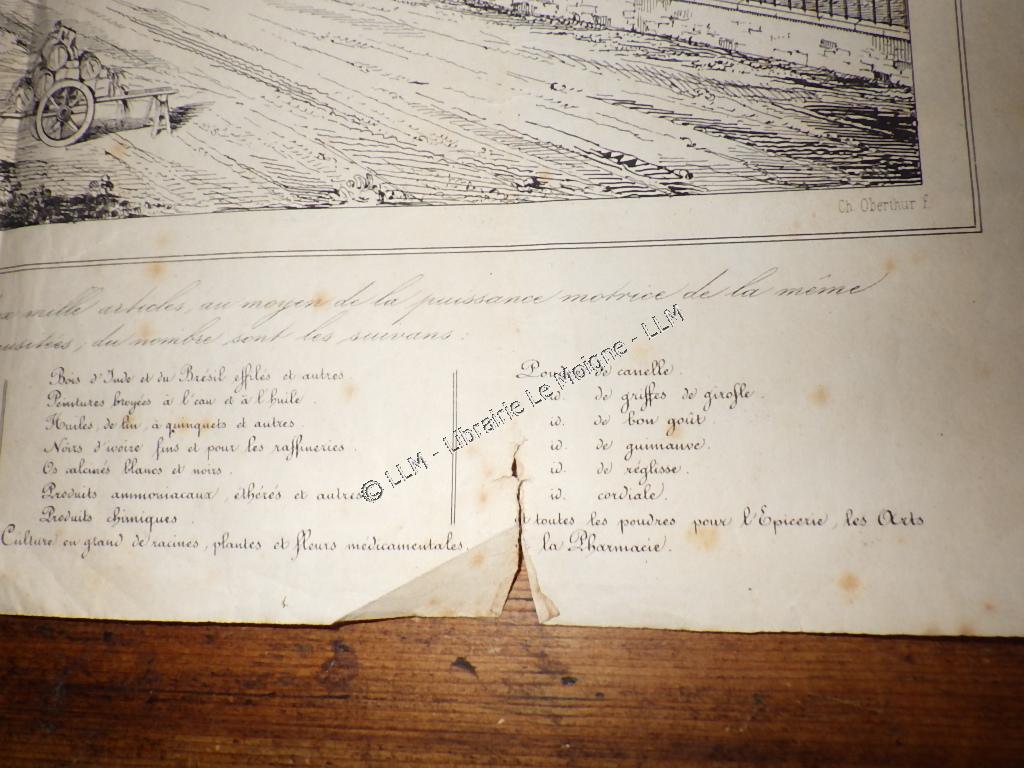 Ch. Oberthur f.
mille articles, au moyen de la puissance motrice de la même
usitées, du nombre sont les suivans :
Bois d'Inde et du Brésil effilés et autres.
Peintures broyées à l'eau et à l'huile.
Huiles, de lin, à quinquets et autres.
Noirs d'ivoire fins et pour les raffineries.
Os calcinés blancs et noirs.
Produits ammoniacaux, éthérés et autres
Produits chimiques.
Culture en grand de racines, plantes et fleurs médicamentales,
de canelle.
id. de griffes de girofle.
id. de bon goût.
id. de guimauve.
id. de réglisse.
id. cordiale.
et toutes les poudres pour l'Epicerie, les Arts
la Pharmacie.
© LLM - Librairie Le Moigne - LLM